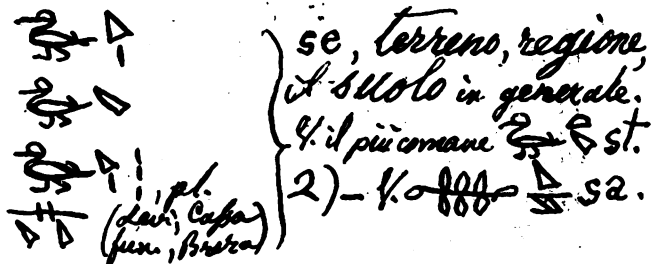 , pl.
(Levi, Cassa
fun., Brera)
se, terreno, regione,
il suolo in generale.
V. il più comune st.
2)– V. sa.